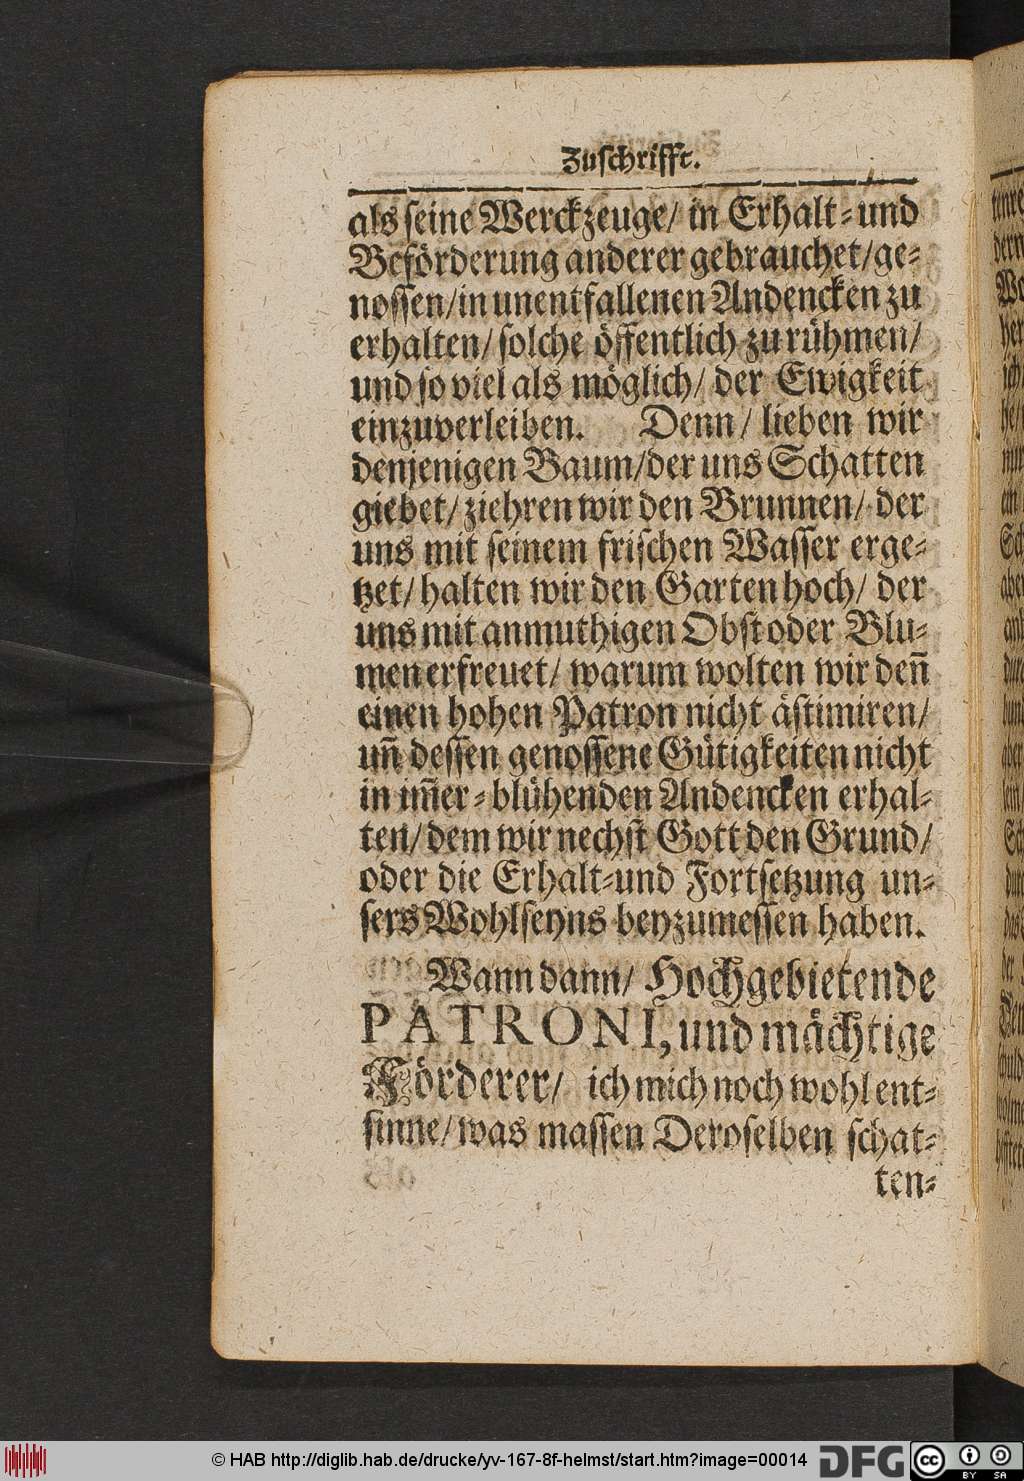 Zuſchrifft.
als ſeine Werckzeuge/ in Erhalt⸗und
Beförderung anderer gebrauchet/ge⸗
noſſen/in unentfallenen Andencken zu
erhalten/ ſolche öffentlich zu rühmen/
und ſo viel als möglich/ der Ewigkeit
einzuverleiben. Denn/ lieben wir
denjenigen Baum/der uns Schatten
giebet/ ziehren wir den Brunnen/ der
uns mit ſeinem friſchen Waſſer erge⸗
tzet/ halten wir den Garten hoch/ der
uns mit anmuthigen Obſt oder Blu⸗
men erfreuet/ warum wolten wir deñ
einen hohen Patron nicht äſtimiren/
uñ deſſen genoſſene Gütigkeiten nicht
in im̃er⸗blühenden Andencken erhal⸗
ten/ dem wir nechſt Gott den Grund/
oder die Erhalt⸗und Fortſetzung un⸗
ſers Wohlſeyns beyzumeſſen haben.
Wann dann/ Hochgebietende
PATRONI, und mächtige
Förderer/ ich mich noch wohl ent⸗
ſinne/ was maſſen Deroſelben ſchat⸗
ten⸗
© HAB http://diglib.hab.de/drucke/yv-167-8f-helmst/start.htm?image=00014
DFG
cc
BY SA